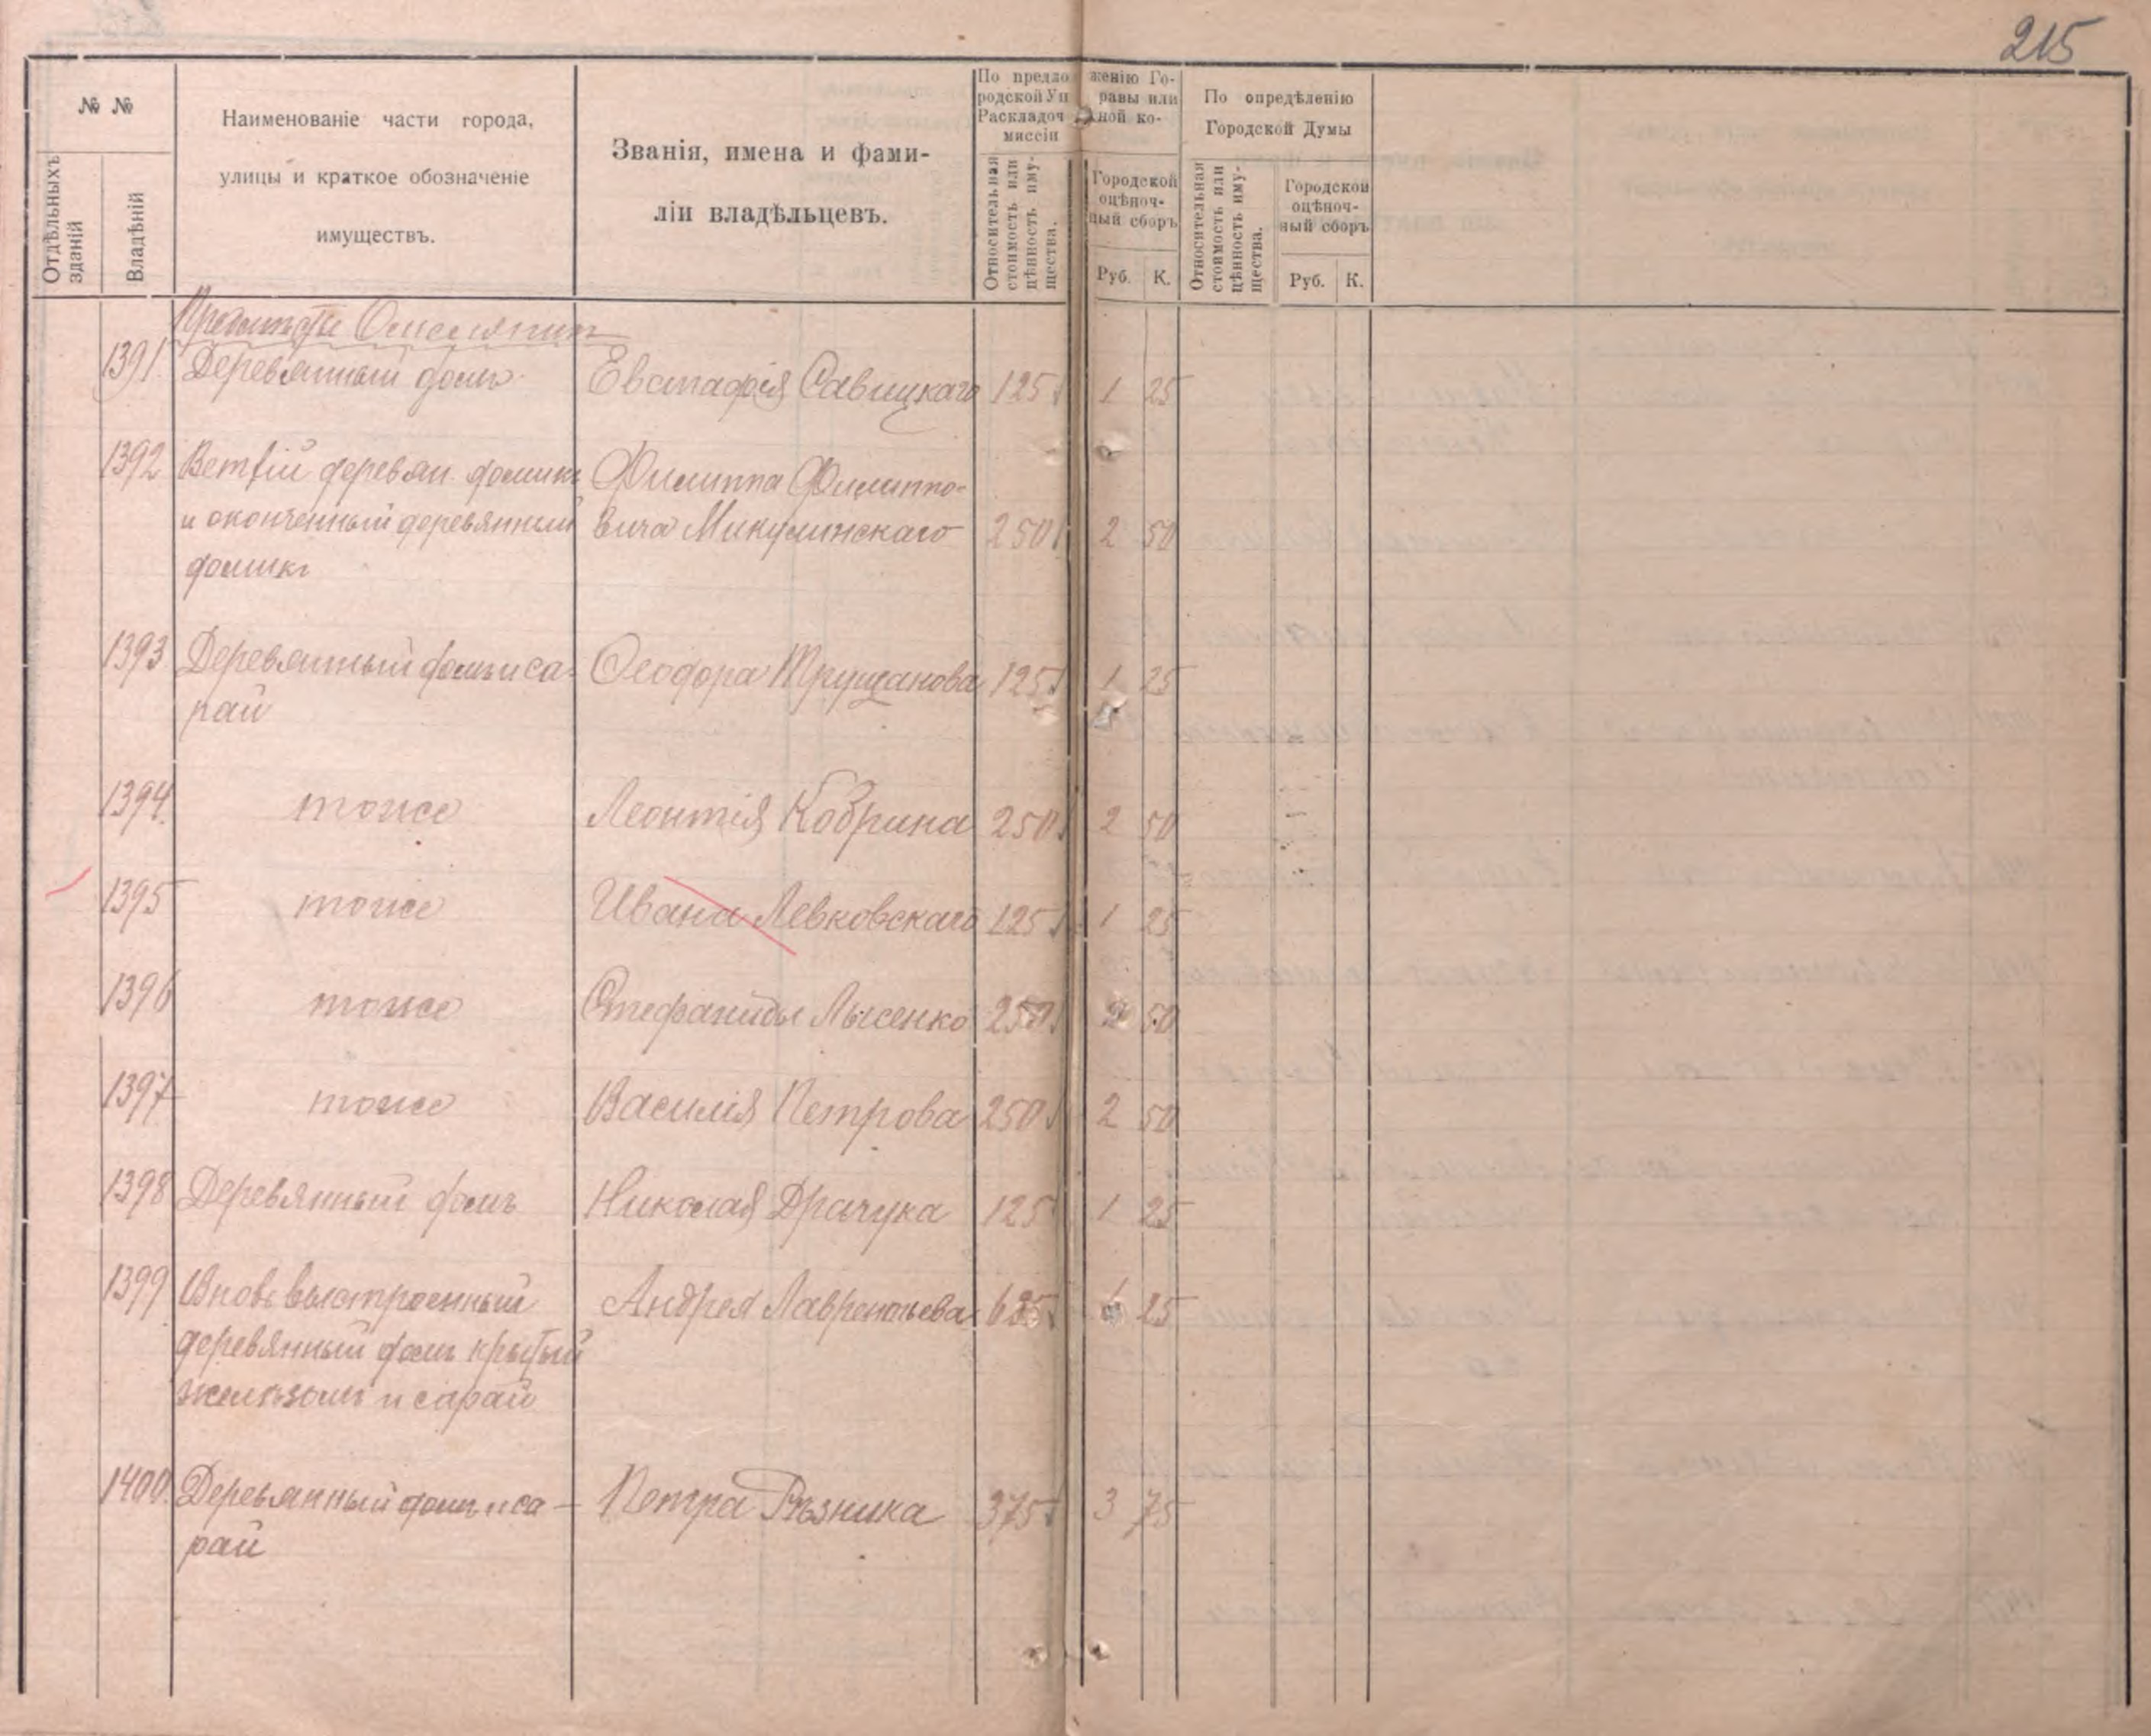 215
№ №
Отдѣльныхъ зданій
Владѣній
Наименованіе части города,
улицы и краткое обозначеніе
имуществъ.
Званія, имена и фами-
ліи владѣльцевъ.
По предло женію Го-
родской Уп равы или
Раскладоч ной ко-
миссіи
Относительная
стоимость или
цѣнность иму-
щества.
Городской
оцѣноч-
ный сборъ
Руб. К.
По опредѣленію
Городской Думы
Относительная
стоимость или
цѣнность иму-
щества.
Городской
оцѣноч-
ный сборъ
Руб. К.
Предмѣстье
1391. Деревянный домъ Евстафія Савицкаго 125 1 25
1392 Ветхій деревян. домикъ Филиппа Филиппо-
и оконченный деревянный вича Микулинскаго 250 2 50
домикъ
1393 Деревянный домъ и са- Ѳеодора Трущанова 125 1 25
рай
1394. тоже Леонтія Кобрина 250 2 50
1395 тоже Ивана Левковскаго 125 1 25
1396 тоже Стефаниды Лысенко 250 2 50
1397 тоже Василія Петрова 250 2 50
1398 Деревянный домъ Николая Драчука 125 1 25
1399 Вновь выстроенный Андрея Лаврентьева 625 6 25
деревянный домъ крытый
желѣзомъ и сарай
1400. Деревянный домъ и са- Петра Рѣзника 375 3 75
рай